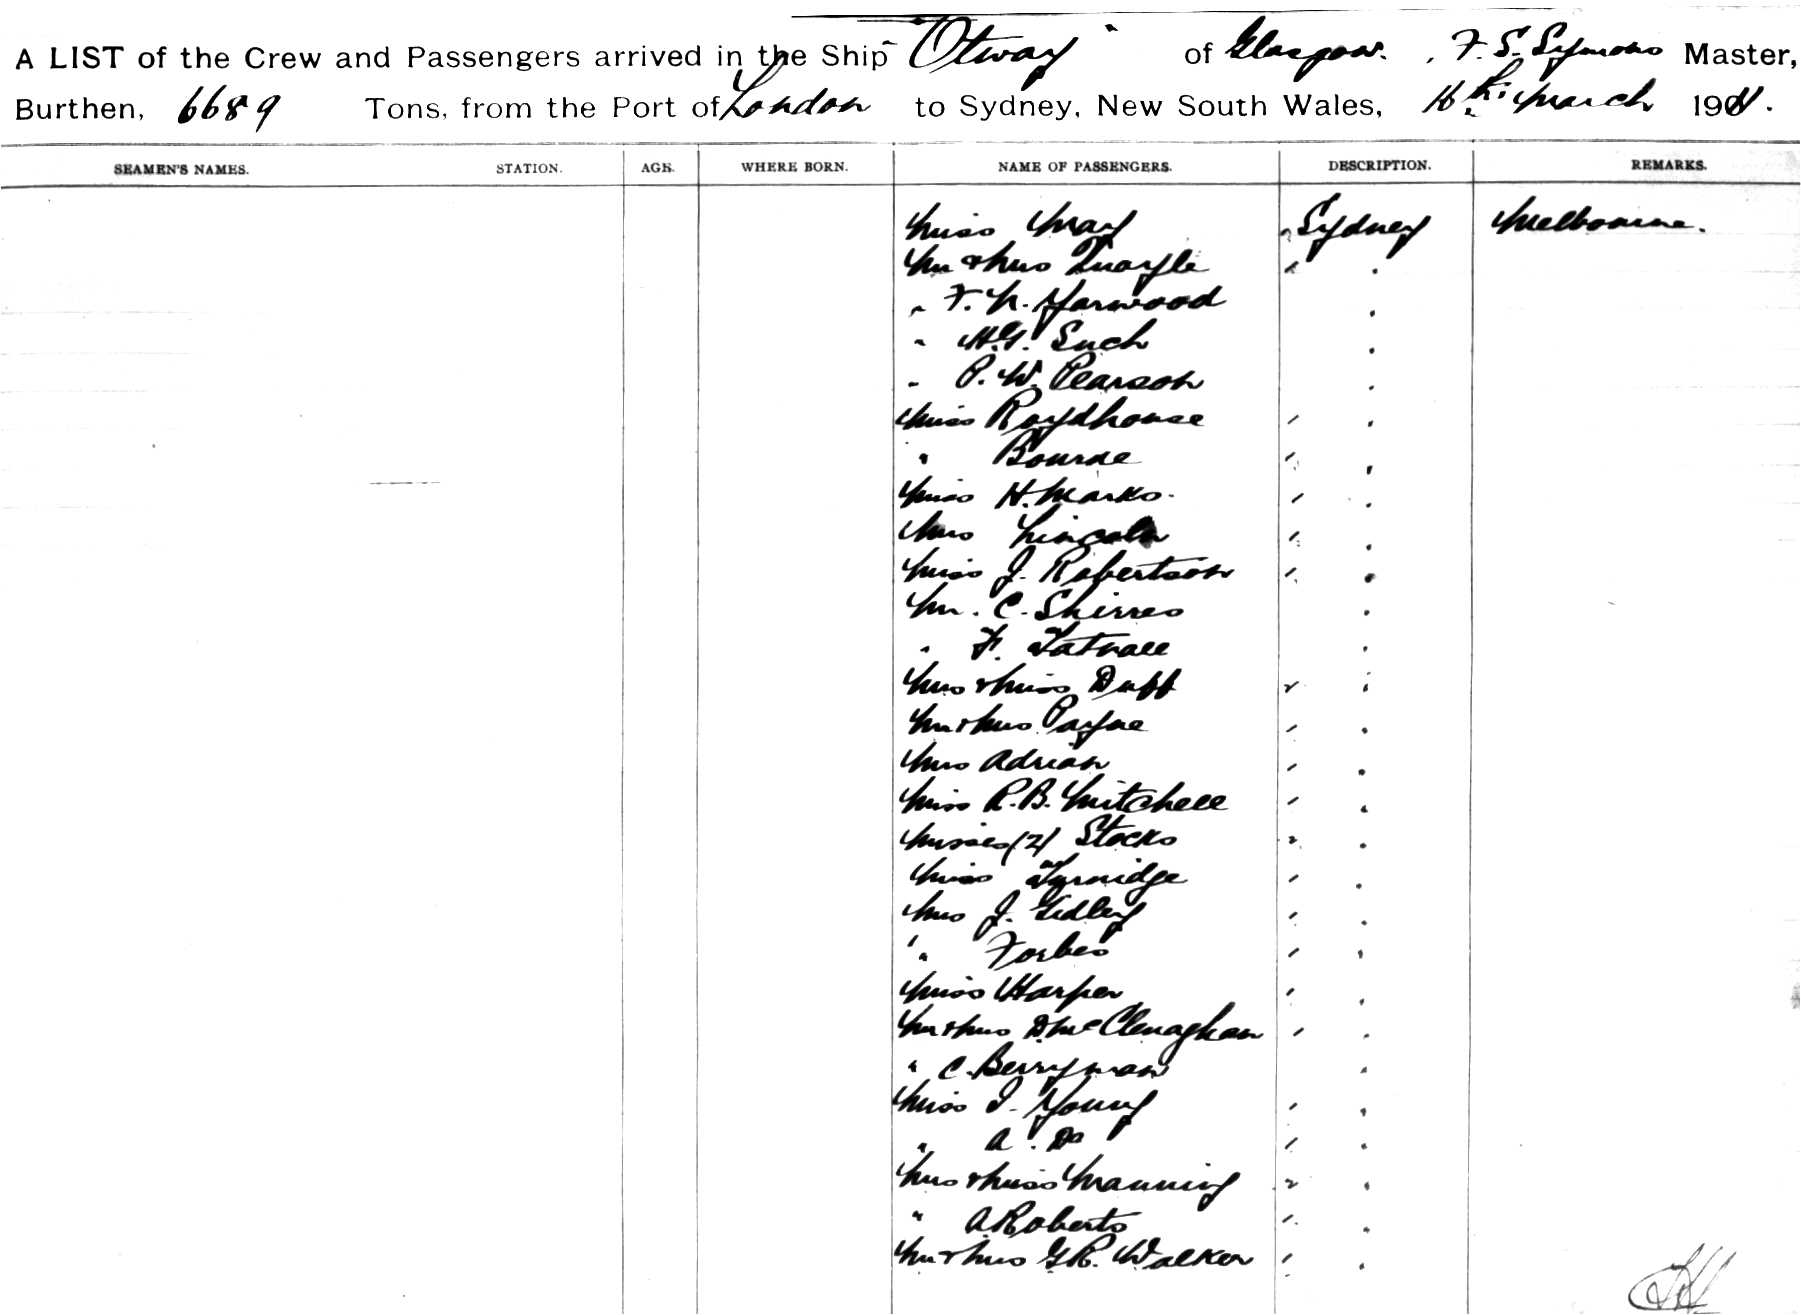 A LIST of the Crew and Passengers arrived in the Ship "Otway" of Glasgow. , F. S. Symons Master,
Burthen, 6689 Tons, from the Port of London to Sydney, New South Wales, 16th March 1911.
SEAMEN'S NAMES. STATION. AGE. WHERE BORN. NAME OF PASSENGERS. DESCRIPTION. REMARKS.
Miss May 1 Sydney Melbourne.
Mr & Mrs Quayle 1 "
" F. N. Yarwood "
" H.G. Such "
" P. W. Pearson "
Miss Roydhouse 1 "
" Bourne 1 "
Miss H. Marks 1 "
Mrs Lincoln 1 "
Miss J. Robertson 1 "
Mr. C. Shirres "
" F. Tatnall "
Mrs & Miss Duff 2 "
Mr & Mrs Payne 1 "
Mrs Adrian 1 "
Miss R. B. Mitchell 1 "
Misses (2) Stocks 2 "
Miss 1 "
Mrs J. Gidley 1 "
" Forbes 1 "
Miss Harper 1 "
Mr & Mrs D. McClenaghan 1 "
" C. Berryman "
Miss I. Young 1 "
" A. Do 1 "
Mrs & Miss Manning 2 "
" A Roberts 1 "
Mr & Mrs G R. Walker 1 "